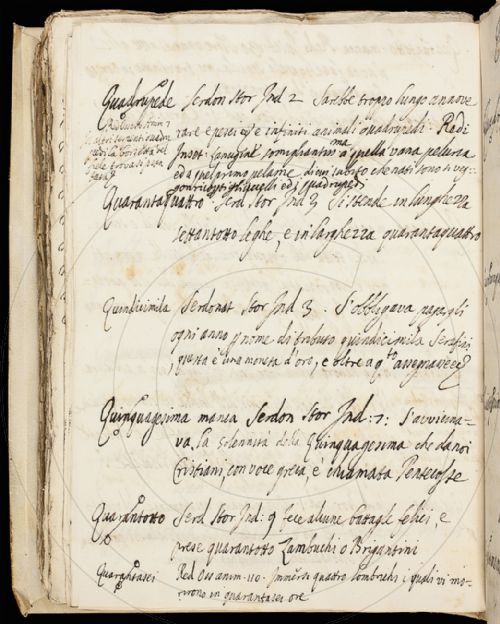 Quadrupede Serdon Stor Ind 2 Sarebbe troppo lungo annove
rare e pesci e infiniti animali quadrupedi. Redi
Inset: lanugine somigliantissima a quella vana peluria
ed a quel primo pelame, di cui subito che nati sono si veg-
gon ricoperti gli uccelli ed i quadrupedi
Quarantaquattro Serd Stor Ind 3 Si stende in lunghezza
settantotto leghe, e in larghezza quarantaquattro
Quindicimila Serdonat Stor Ind 3. S'obbligava pagargli
ogni anno p nome di tributo quindicimila Serafini
questa è una moneta d'oro, e oltre a q.to
Quinquagesima manca Serdon Stor Ind: 7: S'avvicina-
va la solennità della Quinquagesima che da noi
Cristiani, con voce greca, è chiamata Pentecoste
Quarantotto Serd Stor Ind: 9 fece alcune battagle felici, e
prese quarantotto Zambuchi o Brigantini
Quarantasei Red Oss anim. 110. Immersi quattro lombrichi i quali vi mo-
rirono in quarantasei ore